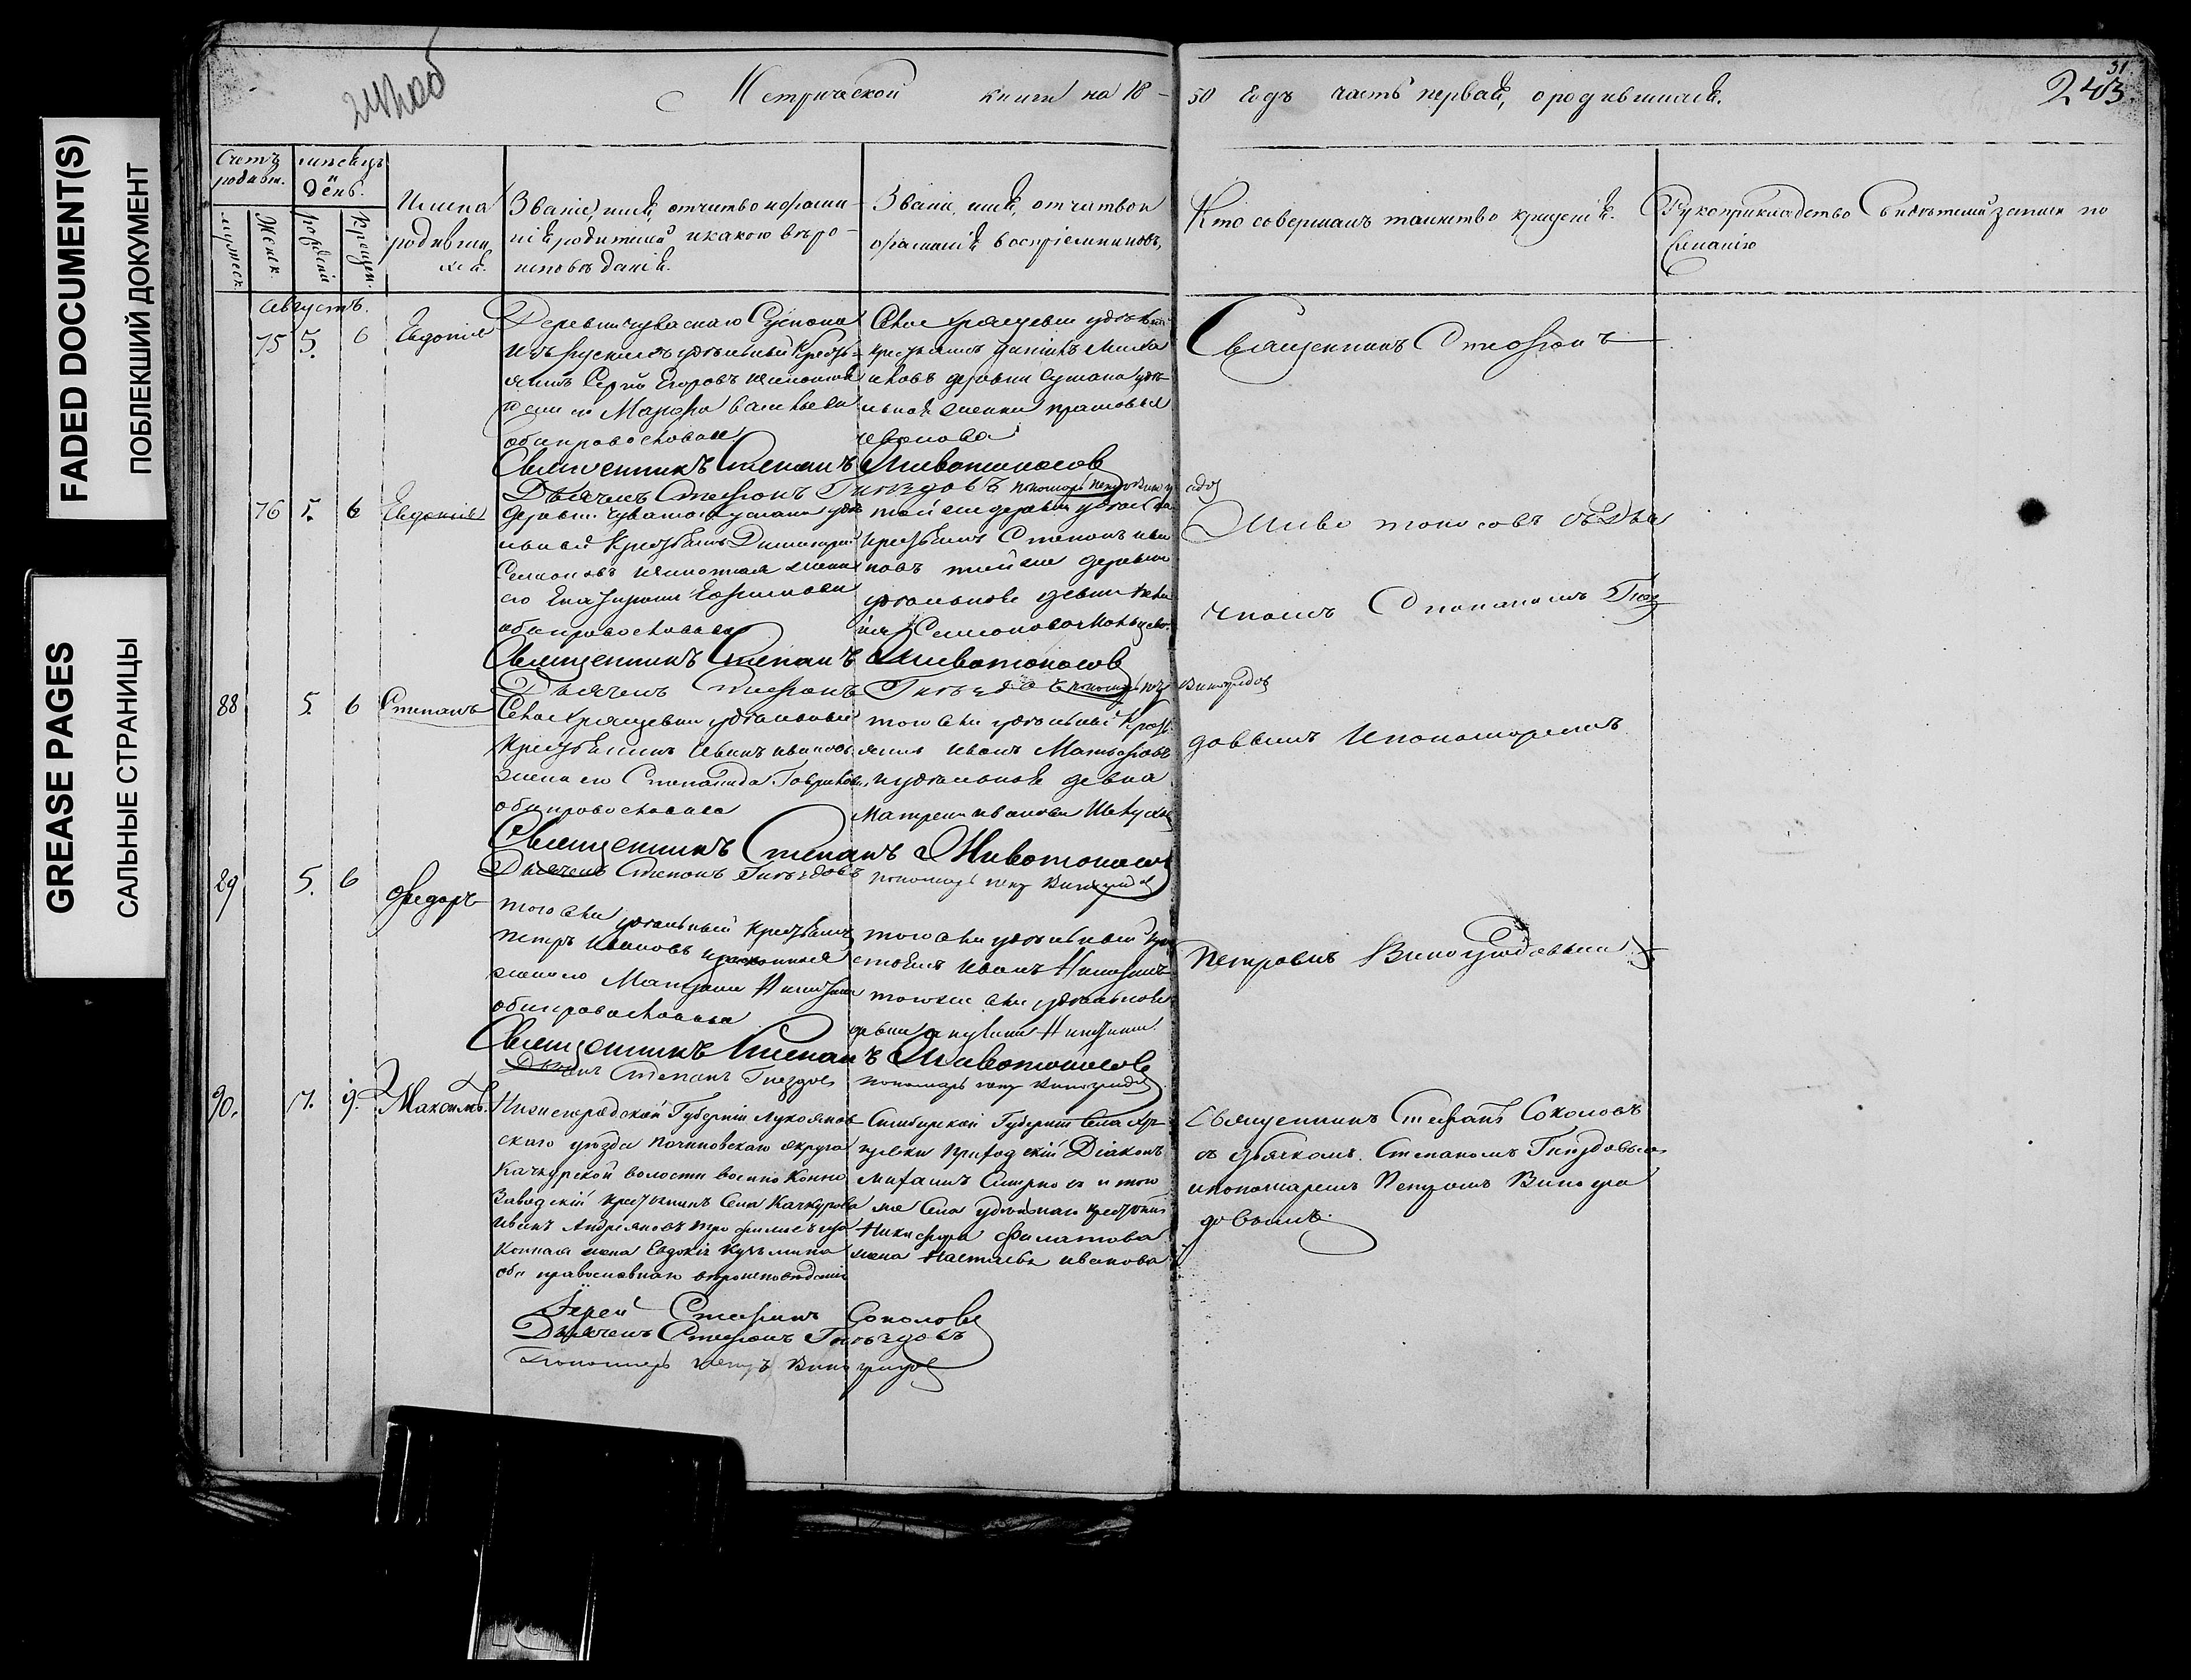 FADED DOCUMENT(S)
ПОБЛЕКШИЙ ДОКУМЕНТ
GREASE PAGES
САЛЬНЫЕ СТРАНИЦЫ
Метрической книги на 18-
50 Годъ часть первая, о родившихся.
31
243
Счетъ родивш.
мѣсяцъ и день.
мужеск.
Женск.
рожденія
Крещен.
Имена родивши хся.
Званіе, имя, отчество и фами-
лія родителей и какого вѣро-
исповѣданія.
Званіе, имя, отчество и
фамилія воспріемниковъ
Кто совершалъ таинство крещенія.
Рукоприкладство свидѣтелей записи по
желанію
Августъ.
75 5. 6 Евдокія
Деревни чувашского Сускана
удѣльный Кресть-
янинъ Сергей Егоровъ и законная
жена его Марфа Васильева
оба православнаго
Села Хрящевки удѣльный
крестьянинъ
деревни Сускана удѣ-
льная
иванова
Священникъ Стефанъ
Священникъ Степанъ Животоносов
Дьячекъ Стефанъ Гнѣздовъ пономарь Петръ Виногра
адов
76 5. 6 Евдокія
деревни чувашского Сускана удѣ-
льный Крестьянинъ Димитрій
Семеновъ и законная жена
его Екатерина Ефимова
оба православнаго
той же деревни удѣльной
крестьянинъ Степанъ Ива
новъ той же деревни
удѣльной девки
Семенова
Животоносовъ съ Дья
чкомъ Степаномъ Гнез
Священникъ Степанъ Животоносов
Дьячекъ Стефанъ Гнѣздовъ пономарь Петръ
Виноградов
88 5. 6 Степанъ
Села Хрящевки удѣльный
Крестьянинъ Иванъ Ивановъ
жена его Степанида Гаврилова
оба православнаго
того села удѣльный Крестъ-
янинъ Иванъ Матвѣевъ
и удѣльной девка
Матрена Иванова
довымъ и пономаремъ
Священникъ Степанъ Животоносов
Дьячекъ Степанъ Гнѣздовъ пономарь Петръ Виноградов
89 5. 6 Федоръ
того села удѣльный Крестьянинъ
Петръ Ивановъ и законная
жена его Матрена Никитина
оба православнаго
того села удѣльный кре
стьянинъ Иванъ Никитинъ
того же села удѣльной
девка Акулина Никитина
Петромъ Виноградовымъ
Священникъ Степанъ Животоносов
Дьячекъ Степанъ Гнездовъ пономарь Петръ Виноградов
90. 17. 19. Максимъ.
Нижегородской Губерніи Лукоянов-
скаго уѣзда Починковскаго округа
Качкурской волости военно Конно
Заводскій крестьянинъ Села Качкурова
Иванъ Андреяновъ Трофимовъ и за-
конная жена Евдокія Кузьмина
оба православнаго вѣроисповѣданія
Симбирской Губерніи Села Хря-
щевки Приходскій Діаконъ
Михаилъ Смирновъ и того
же Села удѣльнаго крестьянина
Никифора Филатова
жена Настасья Иванова
Священникъ Стефанъ Соколовъ
съ дьячкомъ Степаномъ Гнездовымъ
и пономаремъ Петромъ Виногра
довымъ.
Іерей Стефанъ Соколовъ
Дьячекъ Стефанъ Гнѣздовъ
Пономарь Петръ Виноградов